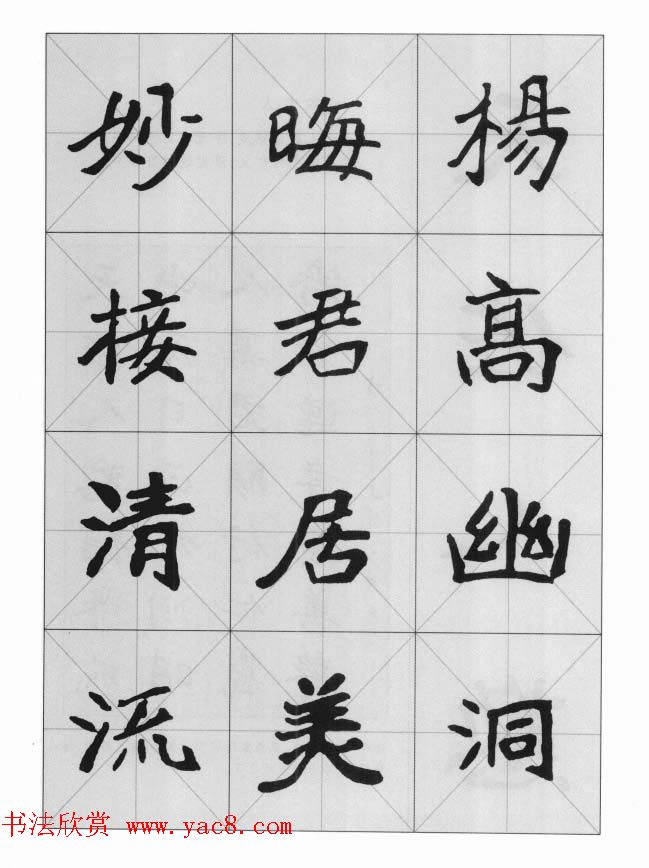 楊髙幽洞
晦君居美
妙接清流
书法欣赏 www.yac8.com